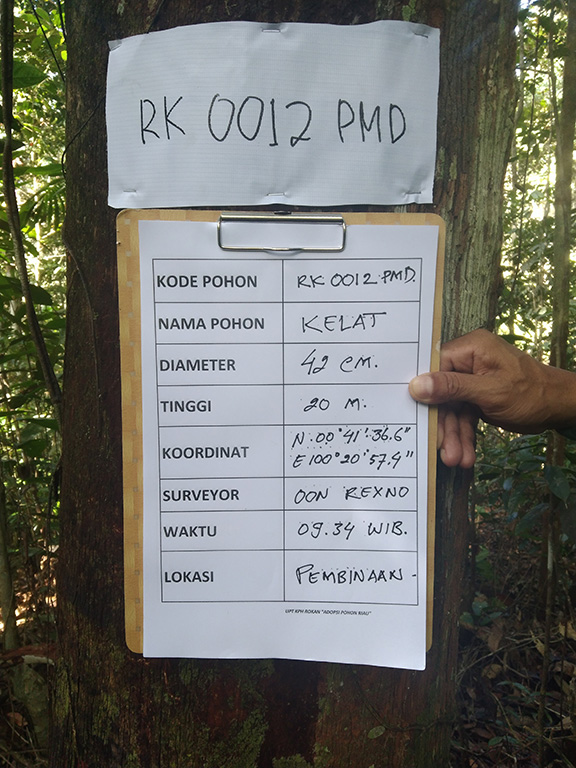 RK 0012 PMD
KODE POHON RK 0012 PMD.
NAMA POHON KELAT
DIAMETER 42 CM.
TINGGI 20 M.
KOORDINAT N.00°41'36.6"
E 100°20'57.4"
SURVEYOR OON REXNO
WAKTU 09.34 WIB.
LOKASI PEMBINAAN -
UPT KPH ROKAN "ADOPSI POHON RIAU"